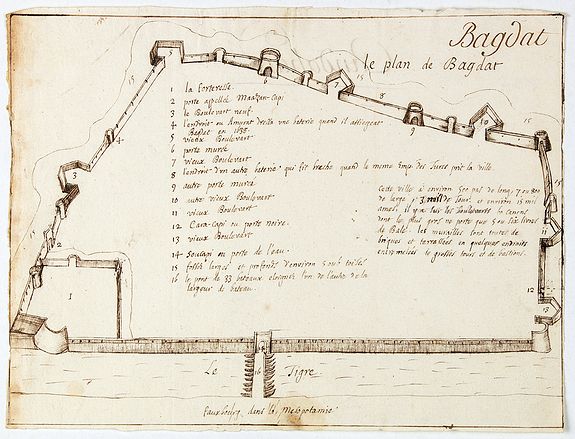 Bagdat
le plan de Bagdat
1 la forteresse.
2 porte appellée Maazan-Capi
3 le Boulevart neuf
4 l'endroit ou Amurat dressa une baterie quand il assiegeat
Bagdat en 1638.
5 vieux Boulevart
6 porte murée
7 vieux Boulevart
8 l'endroit d'un autre baterie qui fit breche quand le mesme Emp. des Turcs prit la ville.
9 autre porte murée
10 autre vieux Boulevart
11 vieux Boulevart
12 Cara-capi ou porte noire.
13 vieux Boulevart
14 Soucapi ou porte de l'eau.
15 fossés larges et profonds d'environ 5 ou 6 toises
16 le pont de 33 bateaux eloignés l'un de l'autre de la
largeur d'un bateau.
Cette ville a environ 500 pas de long, 7 ou 800
de large, 3 mil de Tour. et environ 15 mil
ames, il y a sur les boulevarts 60 canons
dont les plus gros ne porte que 5 ou six livres
de Bale. les murailles sont toutes de
briques et terrassées en quelques endroits
entremelées de grosses tours et de bastions.
Le Tigre
Fauxbourg dans la Mesopotamie